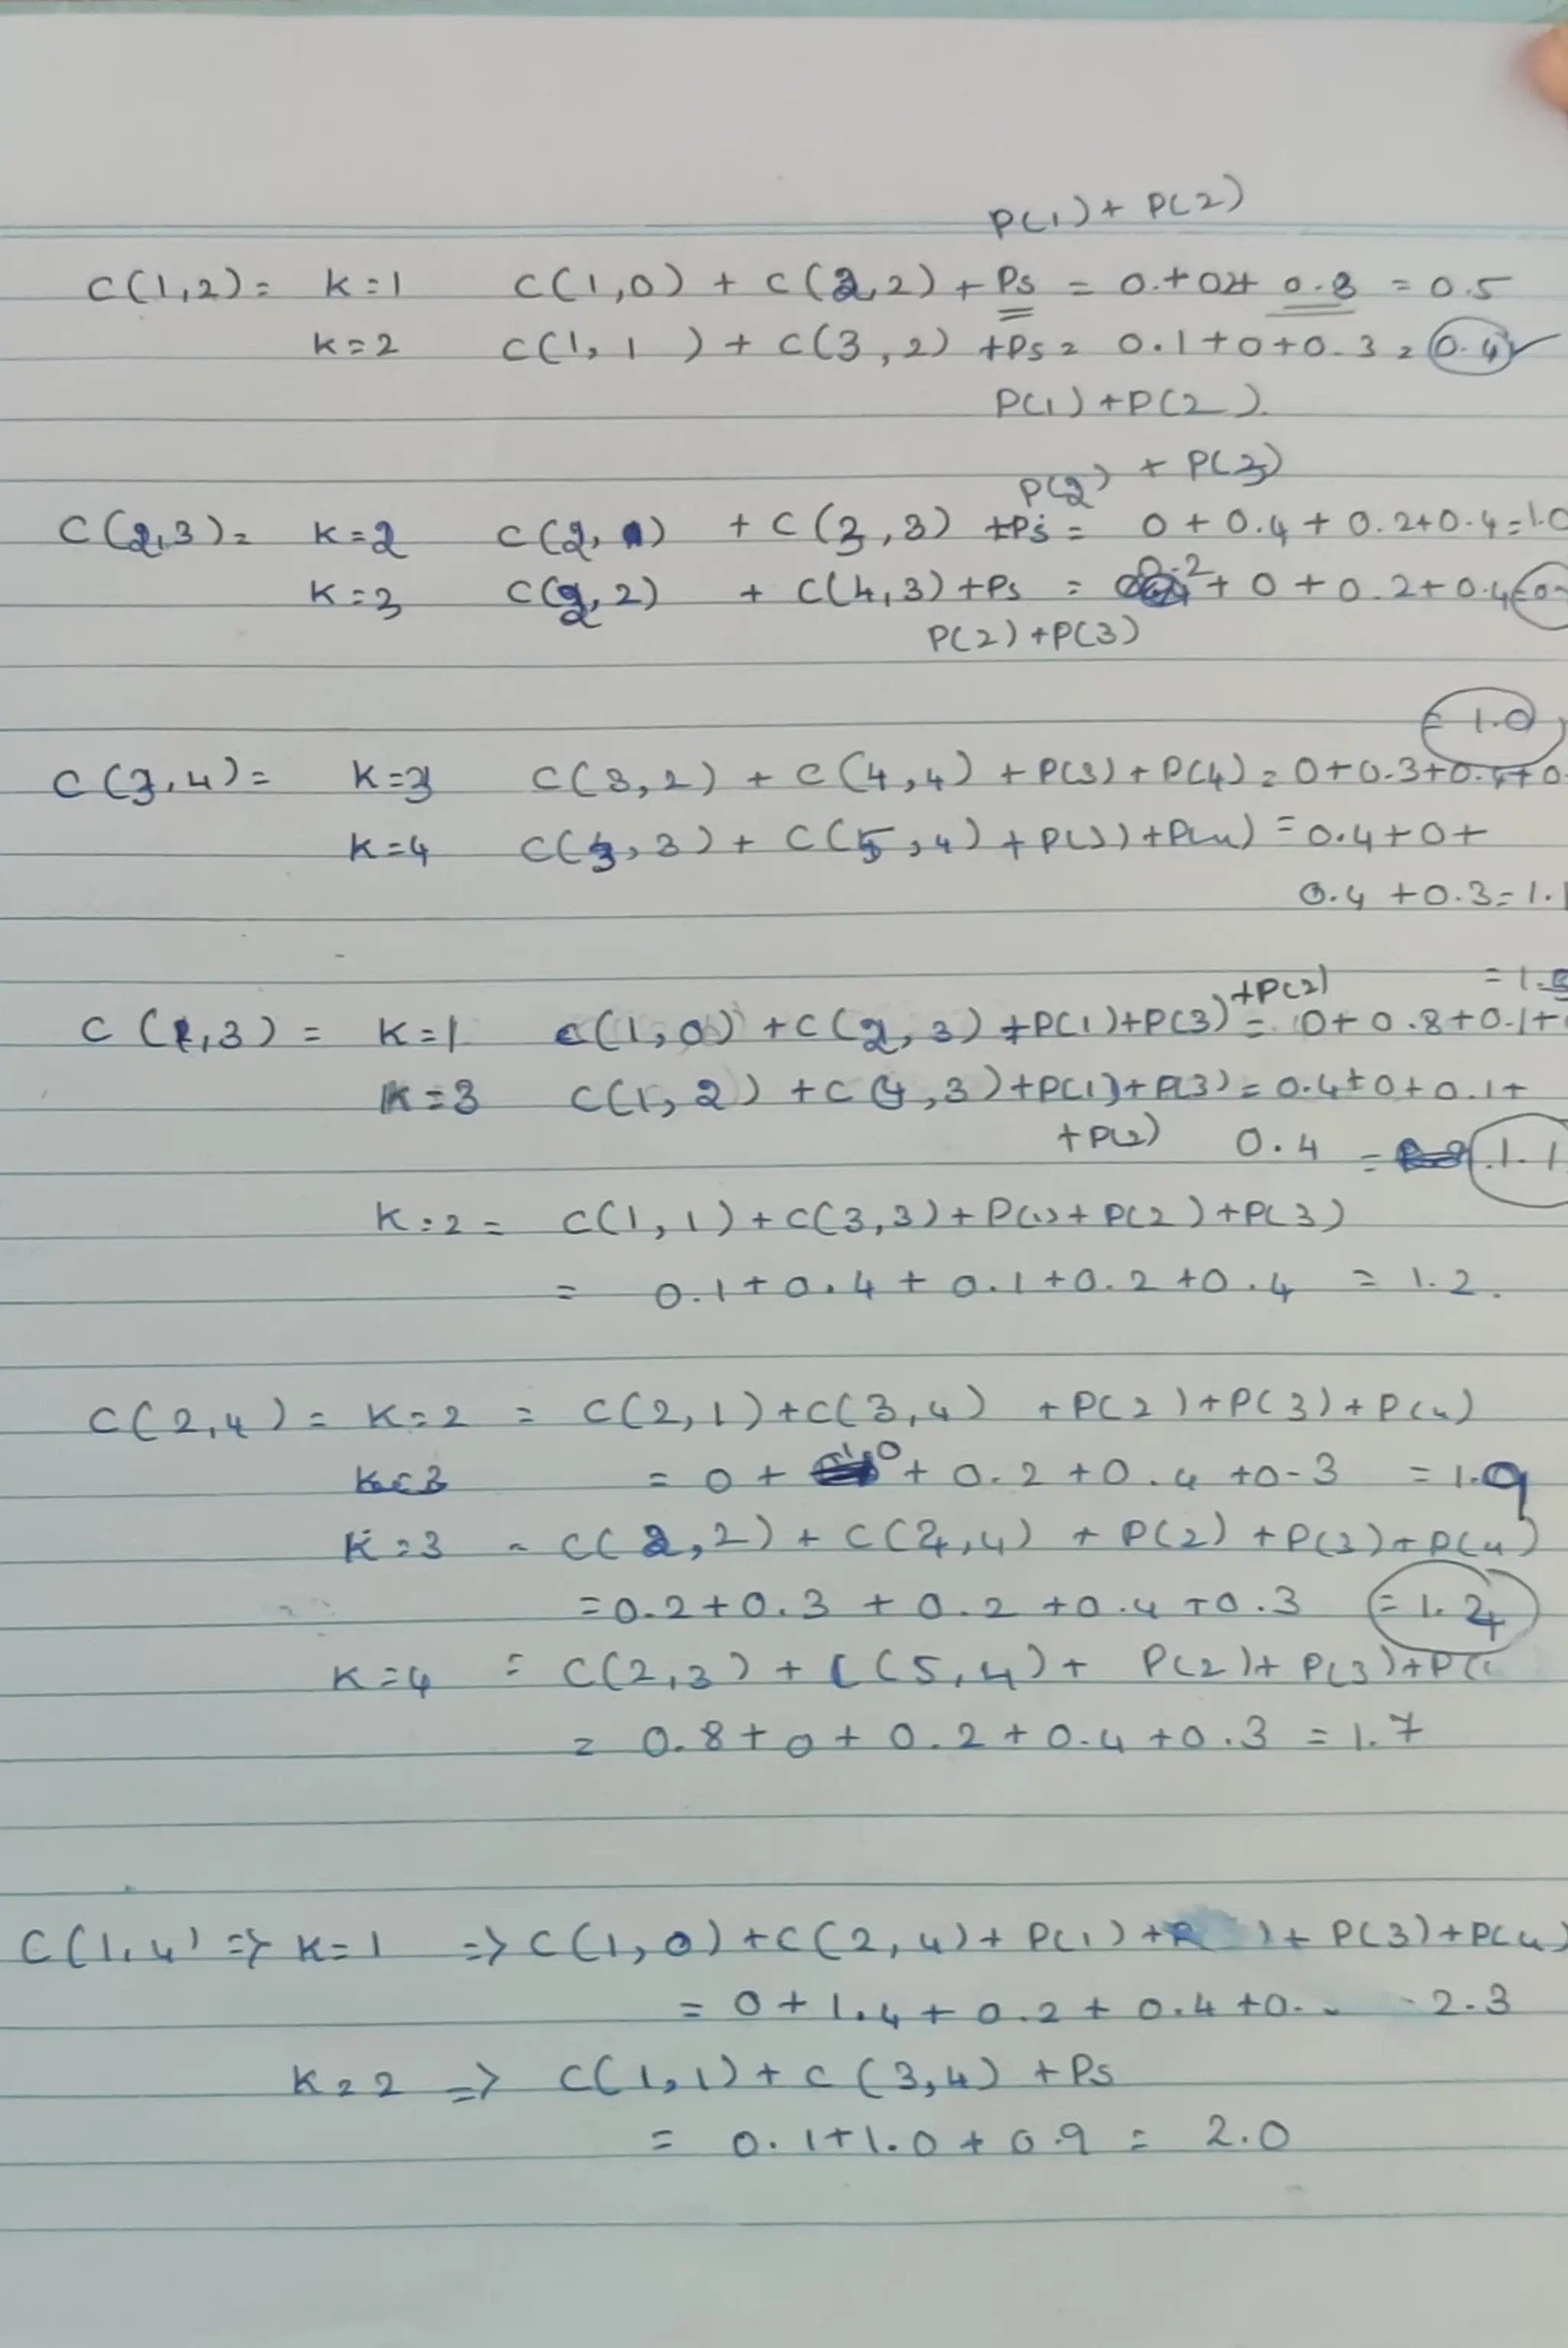 P(1) + P(2)
C(1,2) = K=1 C(1,0) + C(2,2) + Ps = 0.+0.2+ 0.3 = 0.5
K=2 C(1,1) + C(3,2) +Ps = 0.1+0+0.3 = 0.4
P(1) +P(2)
P(2) + P(3)
C(2,3) = K=2 C(2,1) + C(3,3) +Ps = 0 + 0.4 + 0.2+0.4=1.0
K=3 C(2,2) + C(4,3) +Ps = 0.2 + 0 + 0.2+ 0.4
P(2) +P(3)
= 1.0
C(3,4) = K=3 C(3,2) + C(4,4) + P(3) + P(4) = 0+0.3+0.4+0.
K=4 C(3,3) + C(5,4) + P(3) +P(4) = 0.4+0+
0.4 +0.3=1.1
+P(2)
C(1,3) = K=1 C(1,0) +C(2,3) +P(1)+P(3) = 0+ 0.8+0.1+
K=3 C(1,2) +C(4,3)+P(1)+P(3) = 0.4+0+0.1+
+P(2) 0.4 = 1.1
K=2 = C(1,1)+C(3,3)+P(1)+P(2)+P(3)
= 0.1+0.4+0.1+0.2+0.4 = 1.2.
C(2,4) = K=2 = C(2,1)+C(3,4) +P(2)+P(3)+P(4)
K=3 = 0 + 1.0 + 0.2 +0.4 +0.3 = 1.9
K=3 = C(2,2) + C(4,4) + P(2) +P(3)+P(4)
=0.2+0.3 + 0.2 +0.4 +0.3 =1.4
K=4 = C(2,3) + C(5,4)+ P(2)+ P(3)+P(
= 0.8+0+0.2+0.4+0.3 = 1.7
C(1,4) => K=1 => C(1,0)+C(2,4)+P(1)+P )+P(3)+P(4)
= 0+1.4+0.2+0.4+0. 2.3
K=2 => C(1,1)+C(3,4) +Ps
= 0.1+1.0+0.9 = 2.0